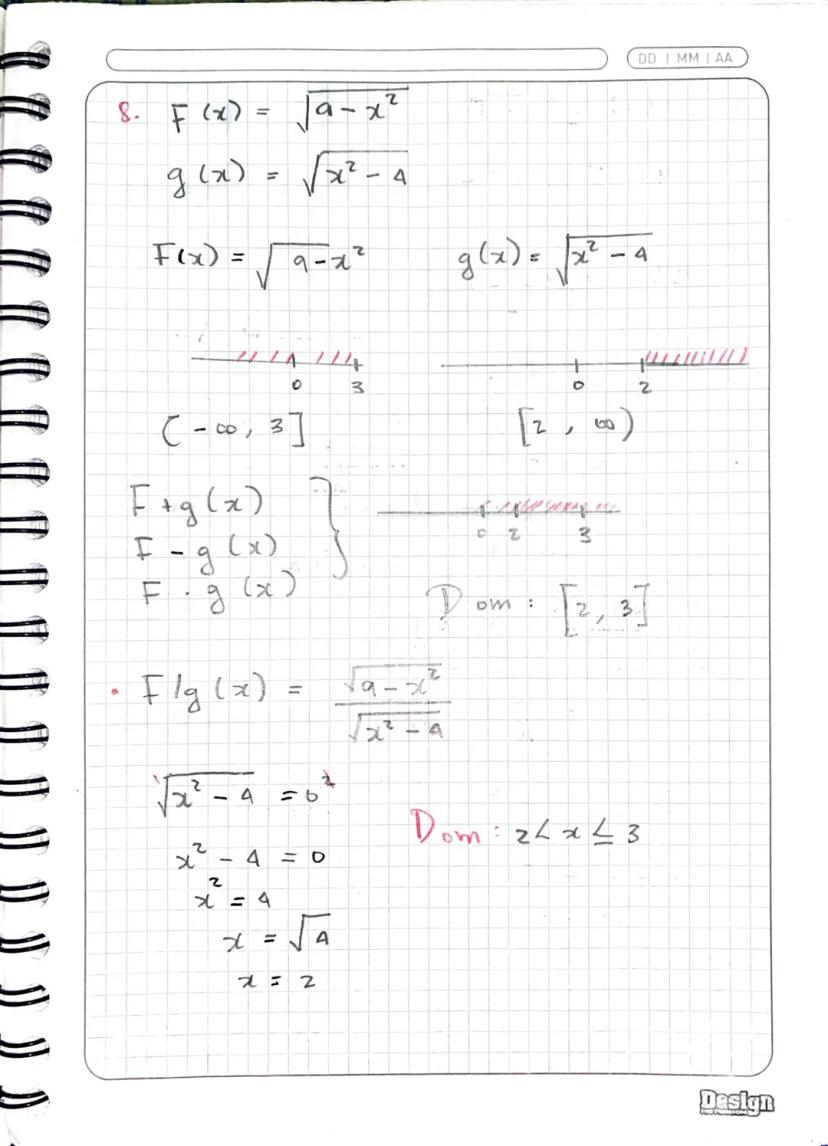 DD | MM | AA
8. F(x) = √(9 - x²)
g(x) = √(x² - 4)
F(x) = √(9 - x²) g(x) = √(x² - 4)
0 3 0 2
(-∞, 3] [2, ∞)
F + g(x)
F - g(x)
F · g(x)
0 2 3
Dom: [2, 3]
• F/g(x) = √(9 - x²) / √(x² - 4)
√(x² - 4) = 0²
x² - 4 = 0
Dom: 2 < x ≤ 3
x² = 4
x = √4
x = 2
Design